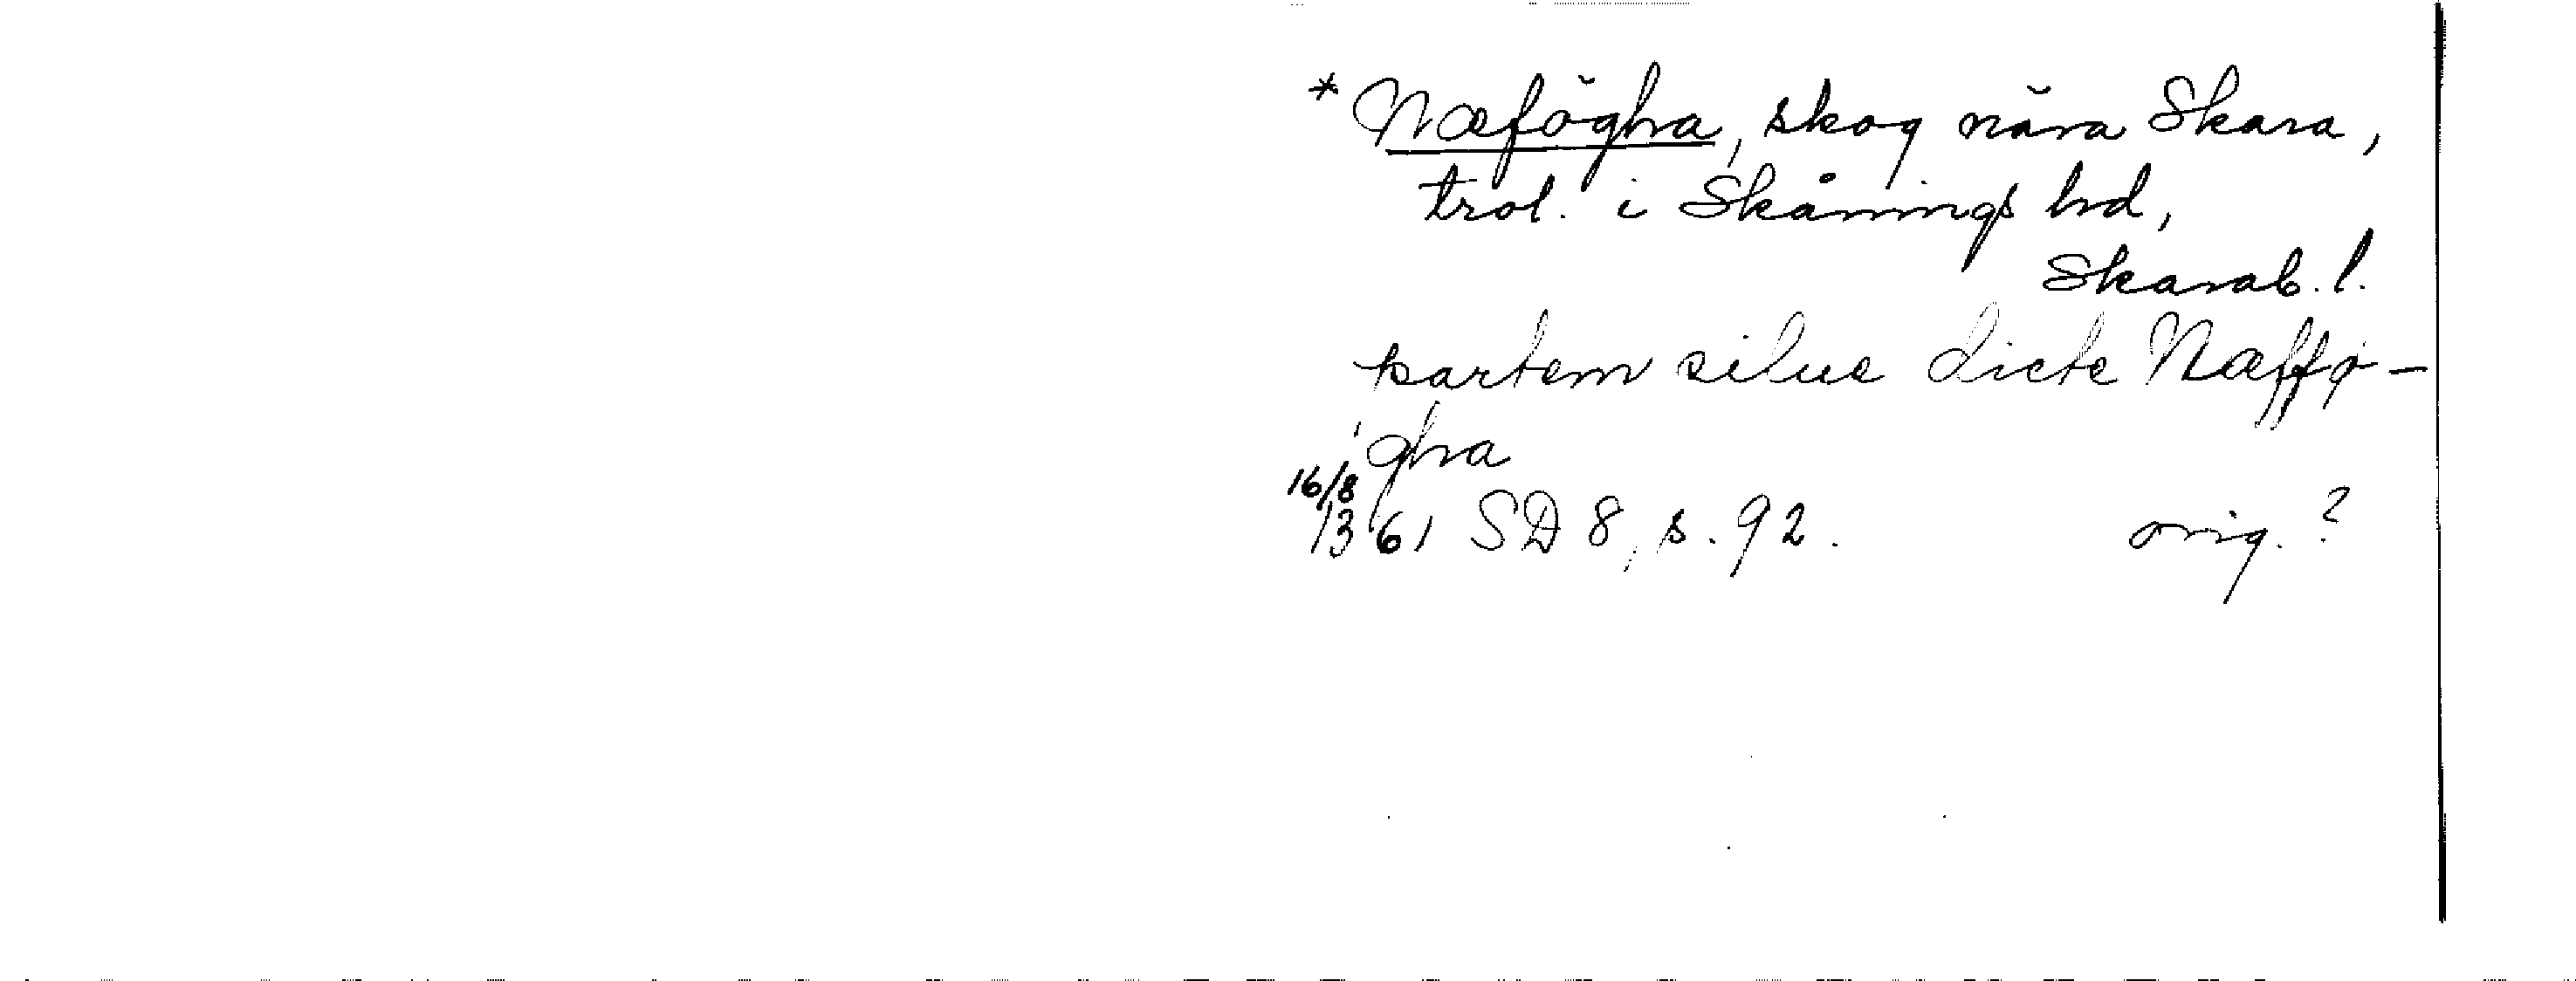 * Næfögha, skog nära Skara,
trol. i Skånings hd,
Skarab. l.
partem silue dicte Næffø-
gha
16/8
1361 SD 8, s. 92. orig.?